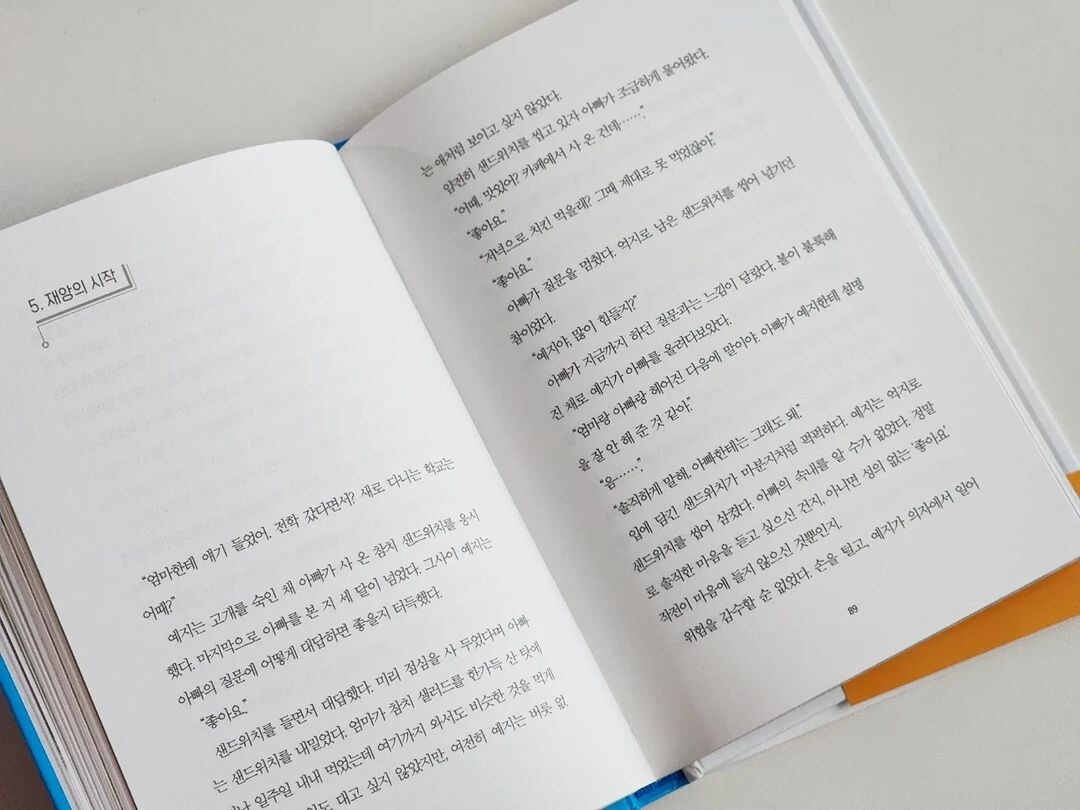 5. 재앙의 시작
“엄마한테 얘기 들었어. 전학 갔다면서? 새로 다니는 학교는
어때?”
예지는 고개를 숙인 채 아빠가 사 온 참치 샌드위치를 응시
했다. 마지막으로 아빠를 본 지 세 달이 넘었다. 그사이 예지는
아빠의 질문에 어떻게 대답하면 좋을지 터득했다.
“좋아요.”
샌드위치를 들면서 대답했다. 미리 점심을 사 두었다며 아빠
는 샌드위치를 내밀었다. 엄마가 참치 샐러드를 한가득 산 탓에
일주일 내내 먹었는데 여기까지 와서도 비슷한 것을 먹게
대고 싶지 않았지만, 여전히 예지는 버릇 없
는 애처럼 보이고 싶지 않았다.
얌전히 샌드위치를 씹고 있자 아빠가 조급하게 물어왔다.
“어때, 맛있어? 카페에서 사 온 건데……”
“좋아요.”
“저녁으로 치킨 먹을래? 그때 제대로 못 먹었잖아.”
“좋아요.”
아빠가 질문을 멈췄다. 억지로 남은 샌드위치를 씹어 넘기던
참이었다.
“예지야, 많이 힘들지?”
아빠가 지금까지 하던 질문과는 느낌이 달랐다. 볼이 볼록해
진 채로 예지가 아빠를 올려다보았다.
“엄마랑 아빠랑 헤어진 다음에 말이야. 아빠가 예지한테 설명
을 잘 안 해 준 것 같아.”
“음……”
“솔직하게 말해. 아빠한테는 그래도 돼.”
입에 담긴 샌드위치가 마분지처럼 퍽퍽하다. 예지는 억지로
샌드위치를 씹어 삼켰다. 아빠의 속내를 알 수가 없었다. 정말
로 솔직한 마음을 듣고 싶으신 건지, 아니면 성의 없는 ‘좋아요’
작전이 마음에 들지 않으신 것뿐인지.
위험을 감수할 순 없었다. 손을 털고, 예지가 의자에서 일어
89